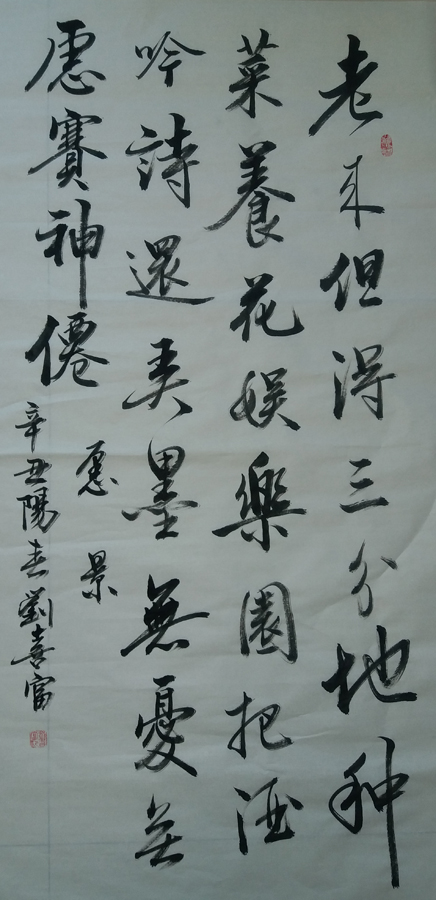 老来但得三分地种
菜養花娱樂園把酒
吟詩還弄墨無憂無
慮賽神僊
愿景
辛丑陽春劉喜富